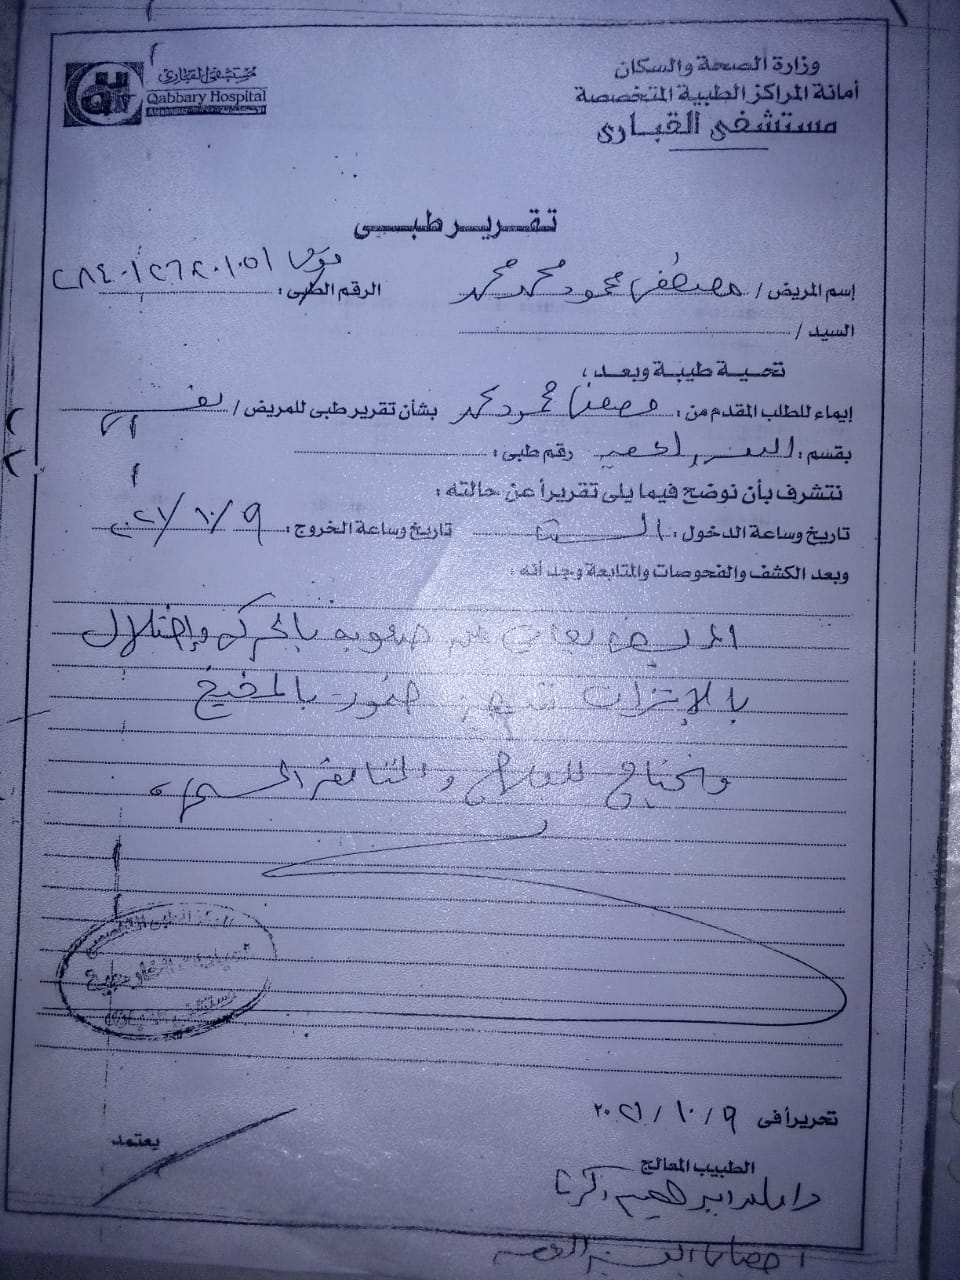 وزارة الصحة والسكان
أمانة المراكز الطبية المتخصصة
مستشفى القبارى
مستشفى القبارى
Qabbary Hospital
تقرير طبى
إسم المريض / مصطفى محمود محمد محمد الرقم الطبى :
السيد /
تحية طيبة وبعد ،
إيماء للطلب المقدم من : مصطفى محمود محمد بشأن تقرير طبى للمريض / نفسه
بقسم : رقم طبى :
نتشرف بأن نوضح فيما يلى تقريراً عن حالته :
تاريخ وساعة الدخول : تاريخ وساعة الخروج : ٩ / ١٠ / ٢٠٢١
وبعد الكشف والفحوصات والمتابعة وجد أنه :
المريض يعانى من صعوبه بالحركه وإختلال
بالإتزان نتيجة ضمور بالمخيخ
ويحتاج للعلاج والمتابعة
العيادات الخارجية
تحريراً فى ٩ / ١٠ / ٢٠٢١
يعتمد
الطبيب المعالج